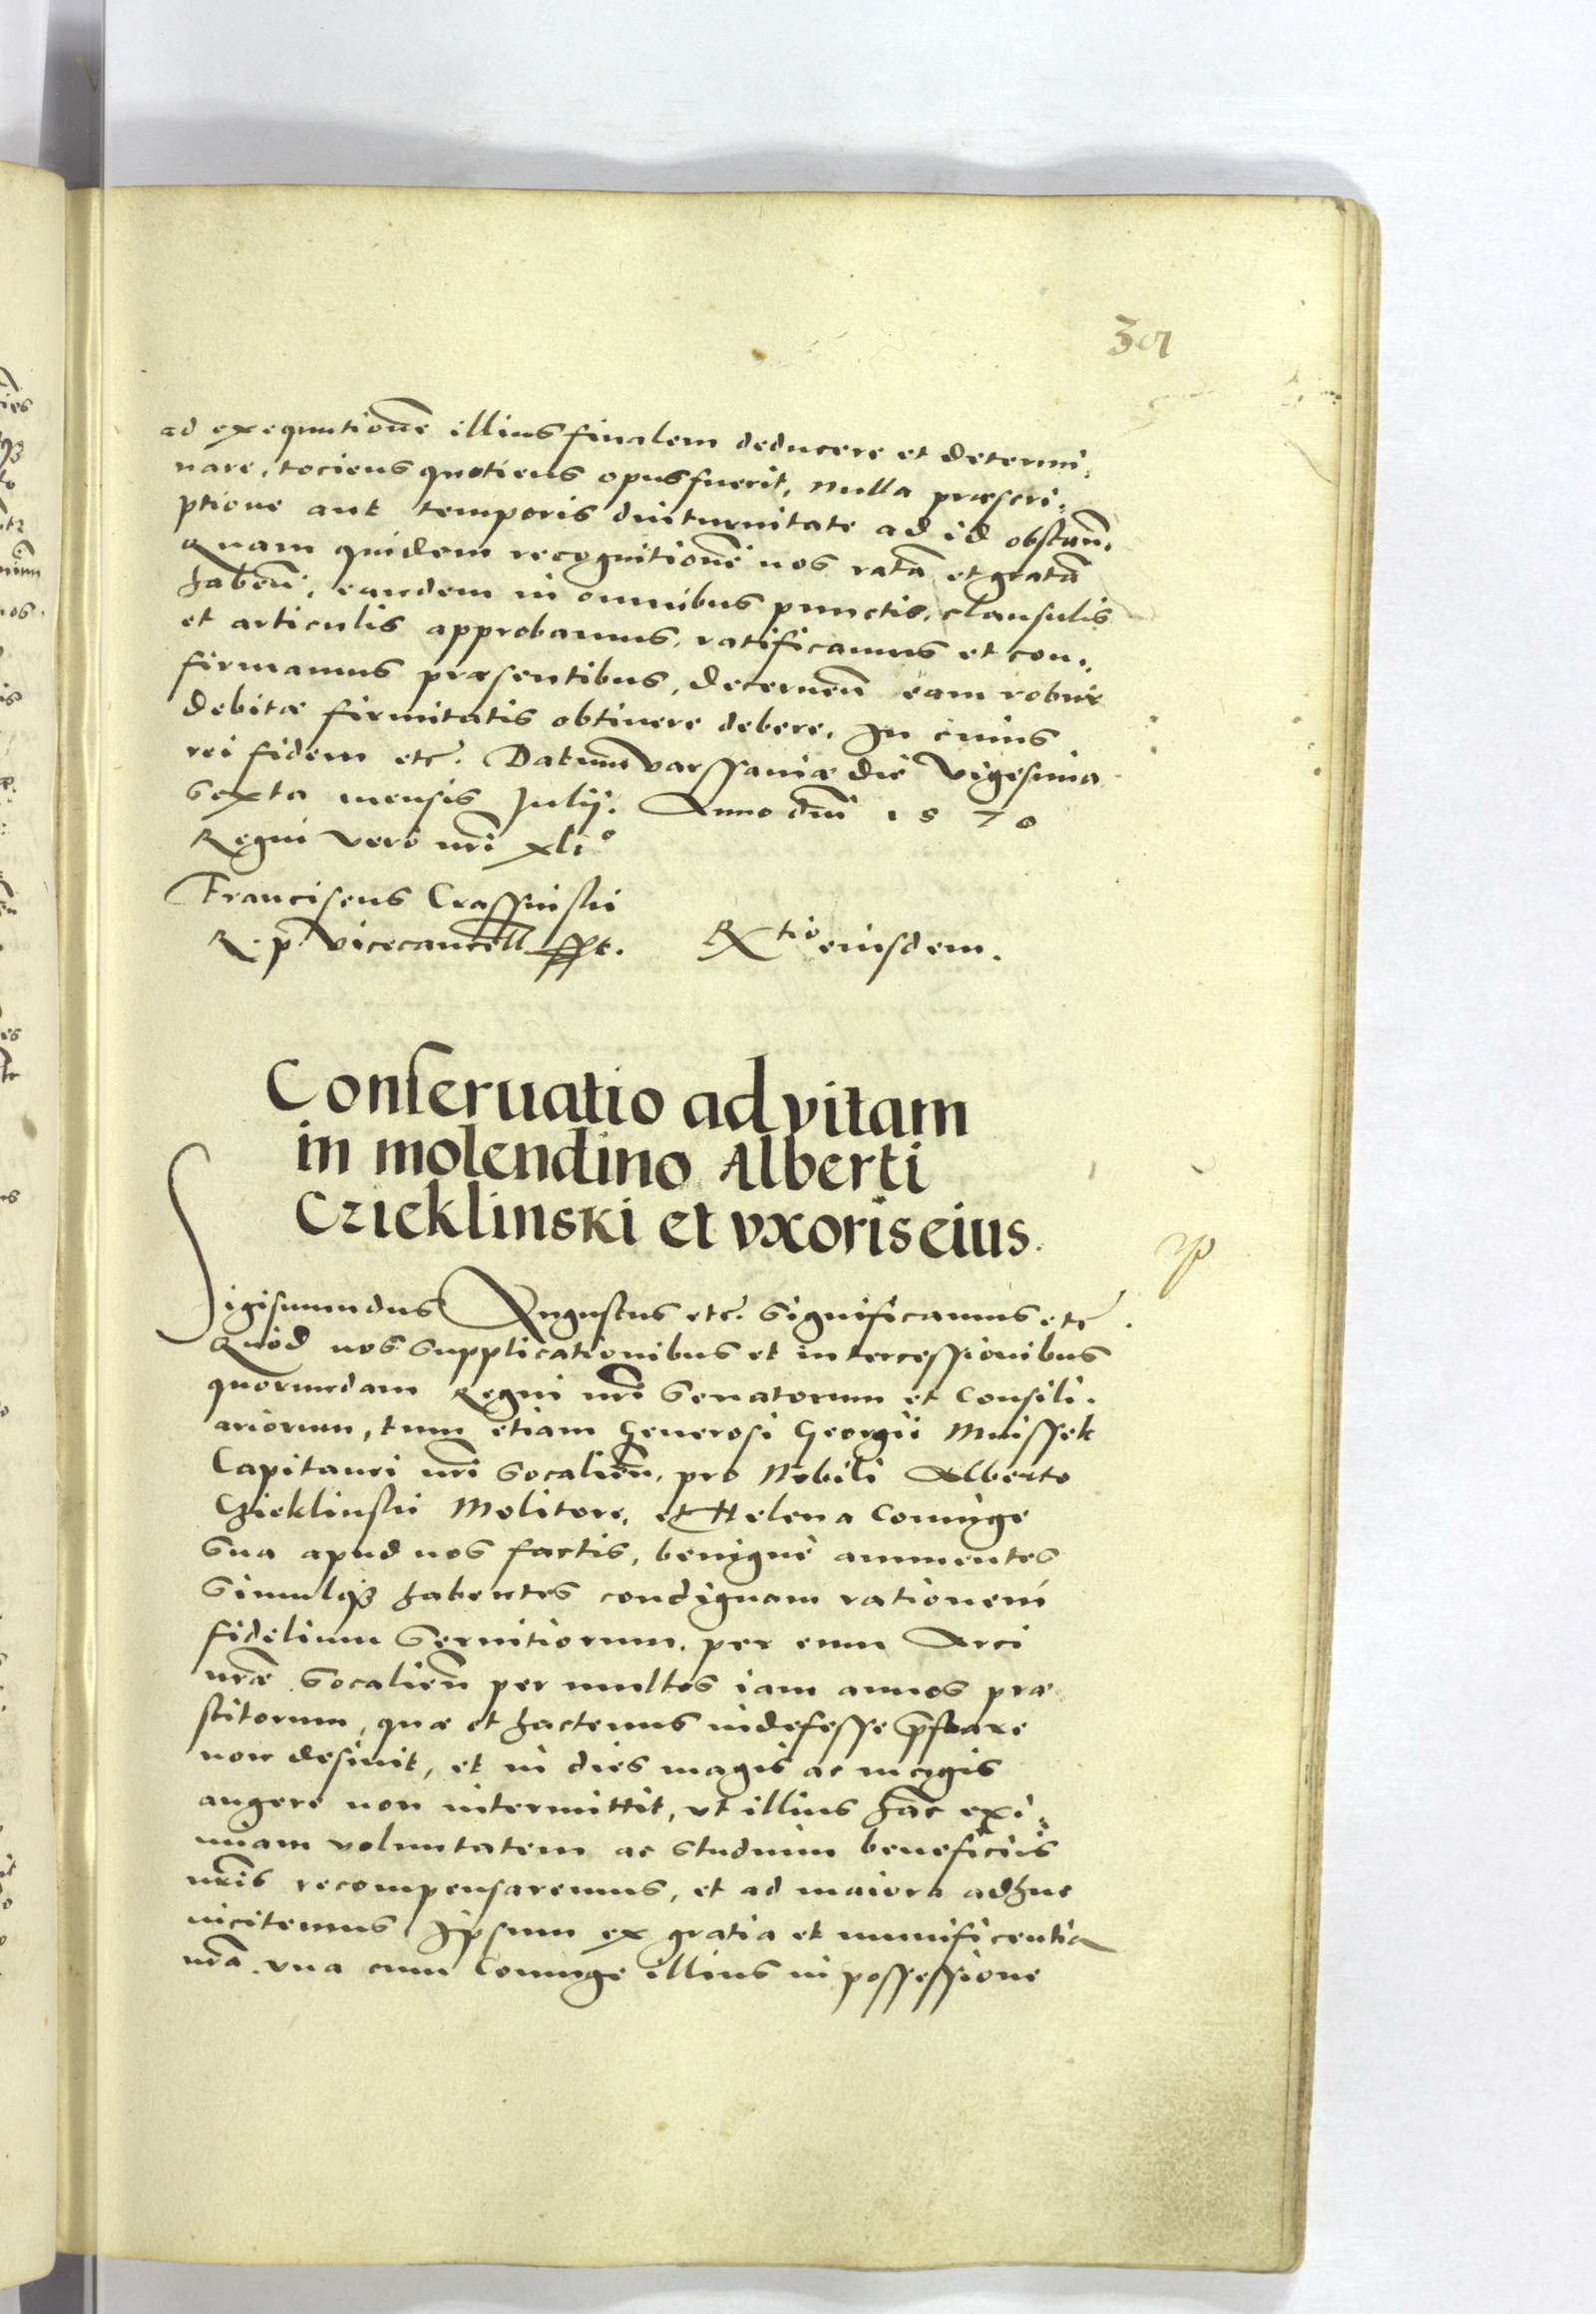 301
ad exequutionẽ illius finalem deducere et determi,
nare, tociens quotiens opus fuerit, nulla præscri,
ptione aut temporis diuturnitate ad id obstañ.
Quam quidem recognitionẽ nos ratã et gratã
habeñ, eandem in omnibus punctis, clausulis
et articulis approbamus, ratificamus et con,
firmamus præsentibus, decerneñ eam robur
debitæ firmitatis obtinere debere. In cuius
rei fidem etc̃. Datum varssauiæ die vigesima
sexta mensis Julij. Anno dñi 1570
Regni vero nr̃i xli°
Franciscus Crassinski
R. p. vicecancell sspt.
Rtio eiusdem.
Conseruatio ad vitam
in molendino Alberti
Czieklinski et vxoris eius.
Sigismundus Augustus etc̃. Significamus etc̃.
Quod nos supplicationibus et intercessionibus
quorundam Regni nr̃i Senatorum et Consili,
ariorum, tum etiam Generosi Georgii Mnissek
Capitanei nr̃i Socalieñ, pro Nobili Alberto
Czieklinski Molitore, et Helena Coniuge
sua apud nos factis, benignè annuentes
simulqȝ habentes condignam rationem
fidelium seruitiorum, per eum Arci
nr̃æ Socalieñ per multos iam annos præ
stitorum, quæ et hactenus indefesse p̃stare
non desinit, et in dies magis ac magis
augere non intermittit, vt illius hãc exi,
miam voluntatem ac studium beneficiis
nr̃is recompensaremus, et ad maiora adhuc
incitemus Ipsum ex gratia et munificentia
nr̃a vna cum Coniuge illius in possessione